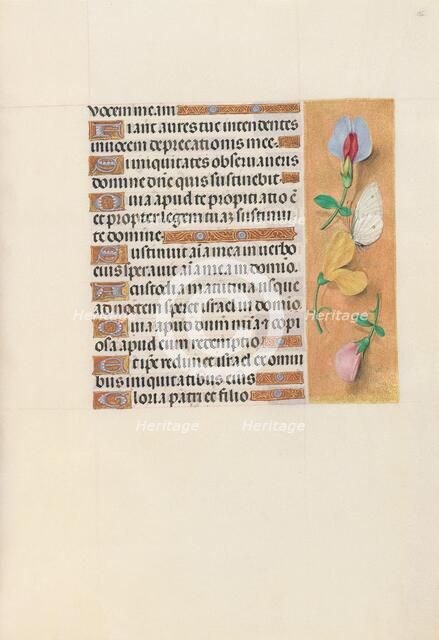 vocem meam
Fiant aures tue intendentes
in vocem deprecationis mee
Si iniquitates observaveris
domine dñe quis sustinebit
Quia apud te propitiatio ē
et propter legem tuaz sustinui
te domine
Sustinuit aīa mea in verbo
eius speravit aīa mea in domīo.
A custodia matutina usque
ad noctem speret israel in domīo.
Quia apud dnm mīa et copi
osa apud eum redemptio
Et ipse redimet israel ex omni
bus iniquitatibus eius
Gloria patri et filio
Heritage
Heritage
Heritage
Heritage
Heritage
Heritage